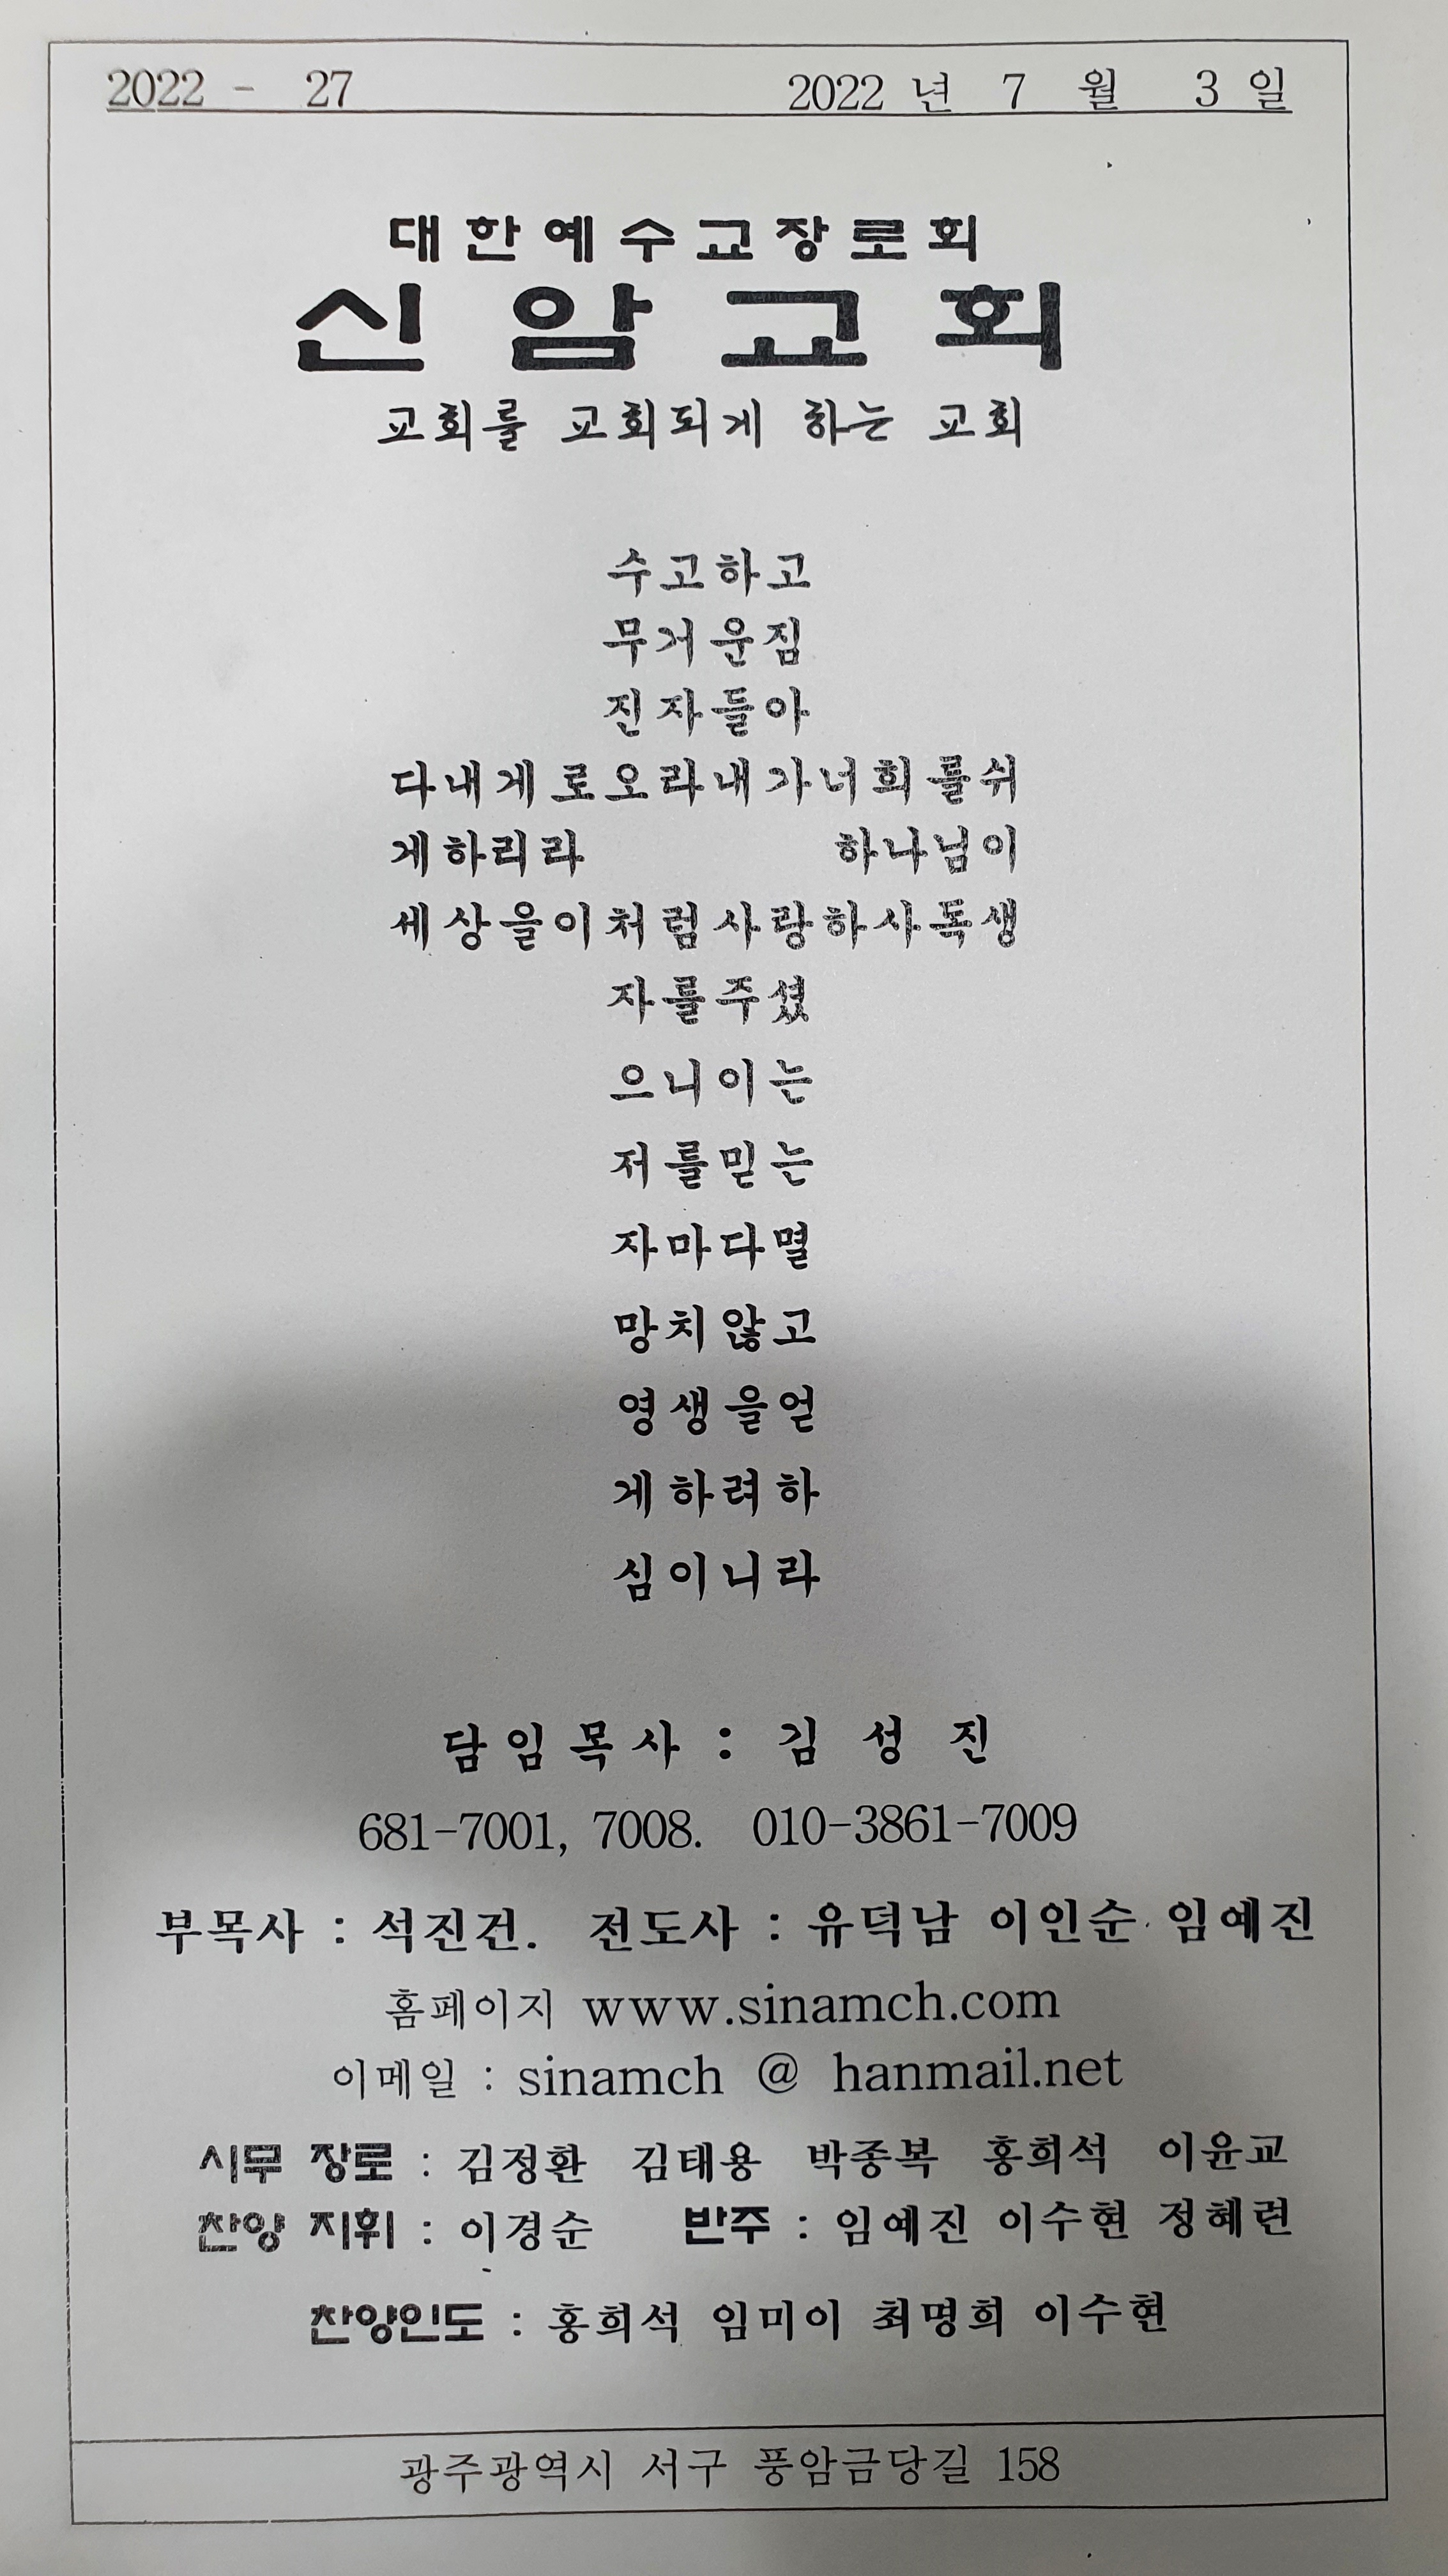 2022 - 27 2022 년 7 월 3 일
대한예수교장로회
신암교회
교회를 교회되게 하는 교회
수고하고
무거운짐
진자들아
다내게로오라내가너희를쉬
게하리라 하나님이
세상을이처럼사랑하사독생
자를주셨
으니이는
저를믿는
자마다멸
망치않고
영생을얻
게하려하
심이니라
담임목사 : 김 성 진
681-7001, 7008. 010-3861-7009
부목사 : 석진건. 전도사 : 유덕남 이인순 임예진
홈페이지 www.sinamch.com
이메일 : sinamch @ hanmail.net
시무 장로 : 김정환 김태용 박종복 홍희석 이윤교
찬양 지휘 : 이경순 반주 : 임예진 이수현 정혜련
찬양인도 : 홍희석 임미이 최명희 이수현
광주광역시 서구 풍암금당길 158